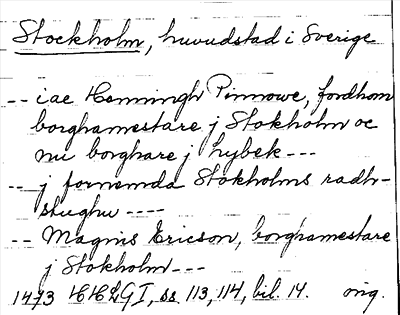 Stockholm, huvudstad i Sverige
-- iac Henningh Pinnowe, fordhom
borghamestare j Stokholm oc
nu borghare j Lybek ---
-- j fornemda Stokholms radh-
stughu ----
-- Magnis Ericson, borghamestare
j Stokholm ---
1473 HHLG I, ss. 113, 114, bil. 14. orig.